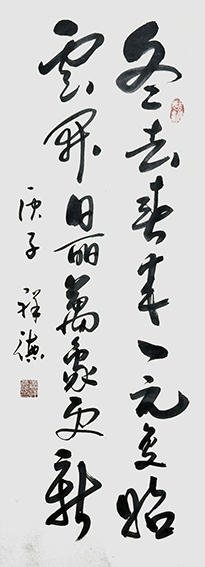 冬去春来一元复始
云开日丽萬象更新
庚子 祥德